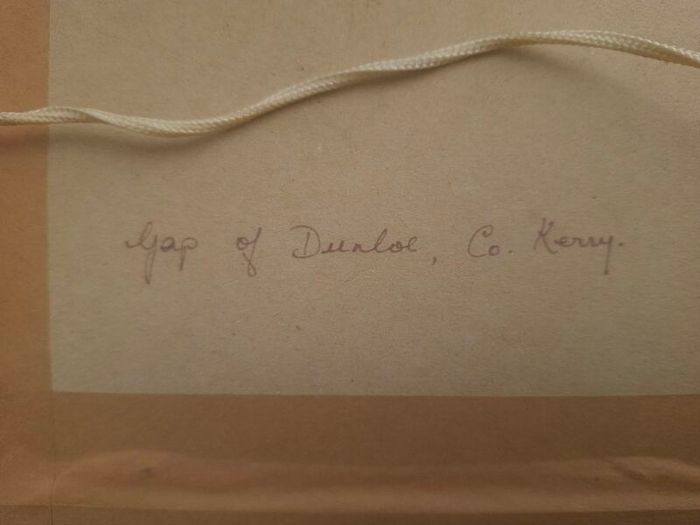 Gap of Dunloe, Co. Kerry.